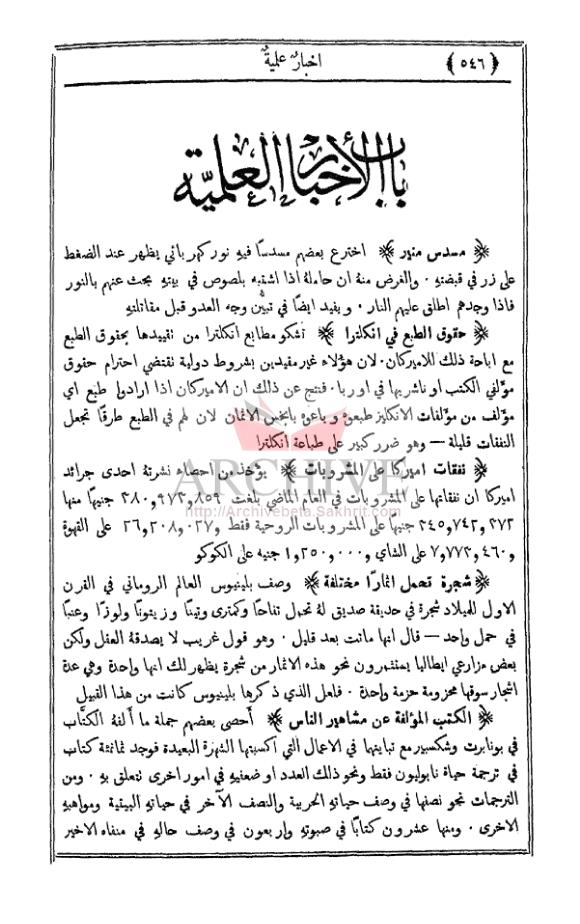 ﴿ ٥٤٦ ﴾ اخبارٌ علميةٌ
باب الأخبار العلميّة
﴿ مسدس منير ﴾ اخترع بعضهم مسدسًا فيهِ نور كهربائي يظهر عند الضغط
على زر في قبضتهِ . والغرض منهُ ان حاملهُ اذا اشتبه بلصوص في بيتهِ بحث عنهم بالنور
فاذا وجدهم اطلق عليهم النار . ويفيد ايضًا في تبيُّن وجه العدو قبل مقاتلتهِ
﴿ حقوق الطبع في انكلترا ﴾ تشكو مطابع انكلترا من تقييدها بحقوق الطبع
مع اباحة ذلك للاميركان . لان هؤلاء غير مقيدين بشروط دولية تقتضي احترام حقوق
مؤلفي الكتب او ناشريها في اوربا . فنتج عن ذلك ان الاميركان اذا ارادوا طبع اي
مؤلف من مؤلفات الانكليز طبعوهُ وباعوهُ بابخس الاثمان لان لهم في الطبع طرقًا تجعل
النفقات قليلة — وهو ضرر كبير على طباعة انكلترا
﴿ نفقات اميركا على المشروبات ﴾ يؤخذ من احصاء نشرتهُ احدى جرائد
اميركا ان نفقاتها على المشروبات في العام الماضي بلغت ٢٨٠,٩٧٢,٨٥٩ جنيهًا منها
٢٤٥,٧٤٢,٢٧٢ جنيهًا على المشروبات الروحية فقط و٢٦,٢٠٨,٠٢٧ على القهوة
و٧,٧٧٢,٤٦٠ على الشاي و١,٢٥٠,٠٠٠ جنيه على الكوكو
﴿ شجرة تحمل اثمارًا مختلفة ﴾ وصف بلينيوس العالم الروماني في القرن
الاول للميلاد شجرة في حديقة صديق لهُ تحمل تفاحًا وكمثرى وتينًا وزيتونًا ولوزًا وعنبًا
في حمل واحد — قال انها ماتت بعد قليل . وهو قول غريب لا يصدقهُ العقل ولكن
بعض مزارعي ايطاليا يستثمرون نحو هذه الاثمار من شجرة يظهر لك انها واحدة وهي عدة
اشجار سوقها محزومة حزمة واحدة . فلعل الذي ذكرها بلينيوس كانت من هذا القبيل
﴿ الكتب المؤلفة عن مشاهير الناس ﴾ أحصى بعضهم جملة ما ألفهُ الكتَّاب
في بونابرت وشكسبير مع تباينها في الاعمال التي اكسبتها الشهرة البعيدة فوجد ثمانمئة كتاب
في ترجمة حياة نابوليون فقط ونحو ذلك العدد او ضعفيهِ في امور اخرى تتعلق بهِ . ومن
الترجمات نحو نصفها في وصف حياتهِ الحربية والنصف الآخر في حياتهِ البيتية ومواهبهِ
الاخرى . ومنها عشرون كتابًا في صبوتهِ واربعون في وصف حالهِ في منفاه الاخير
ARCHIVE
http://Archivebeta.Sakhrit.com